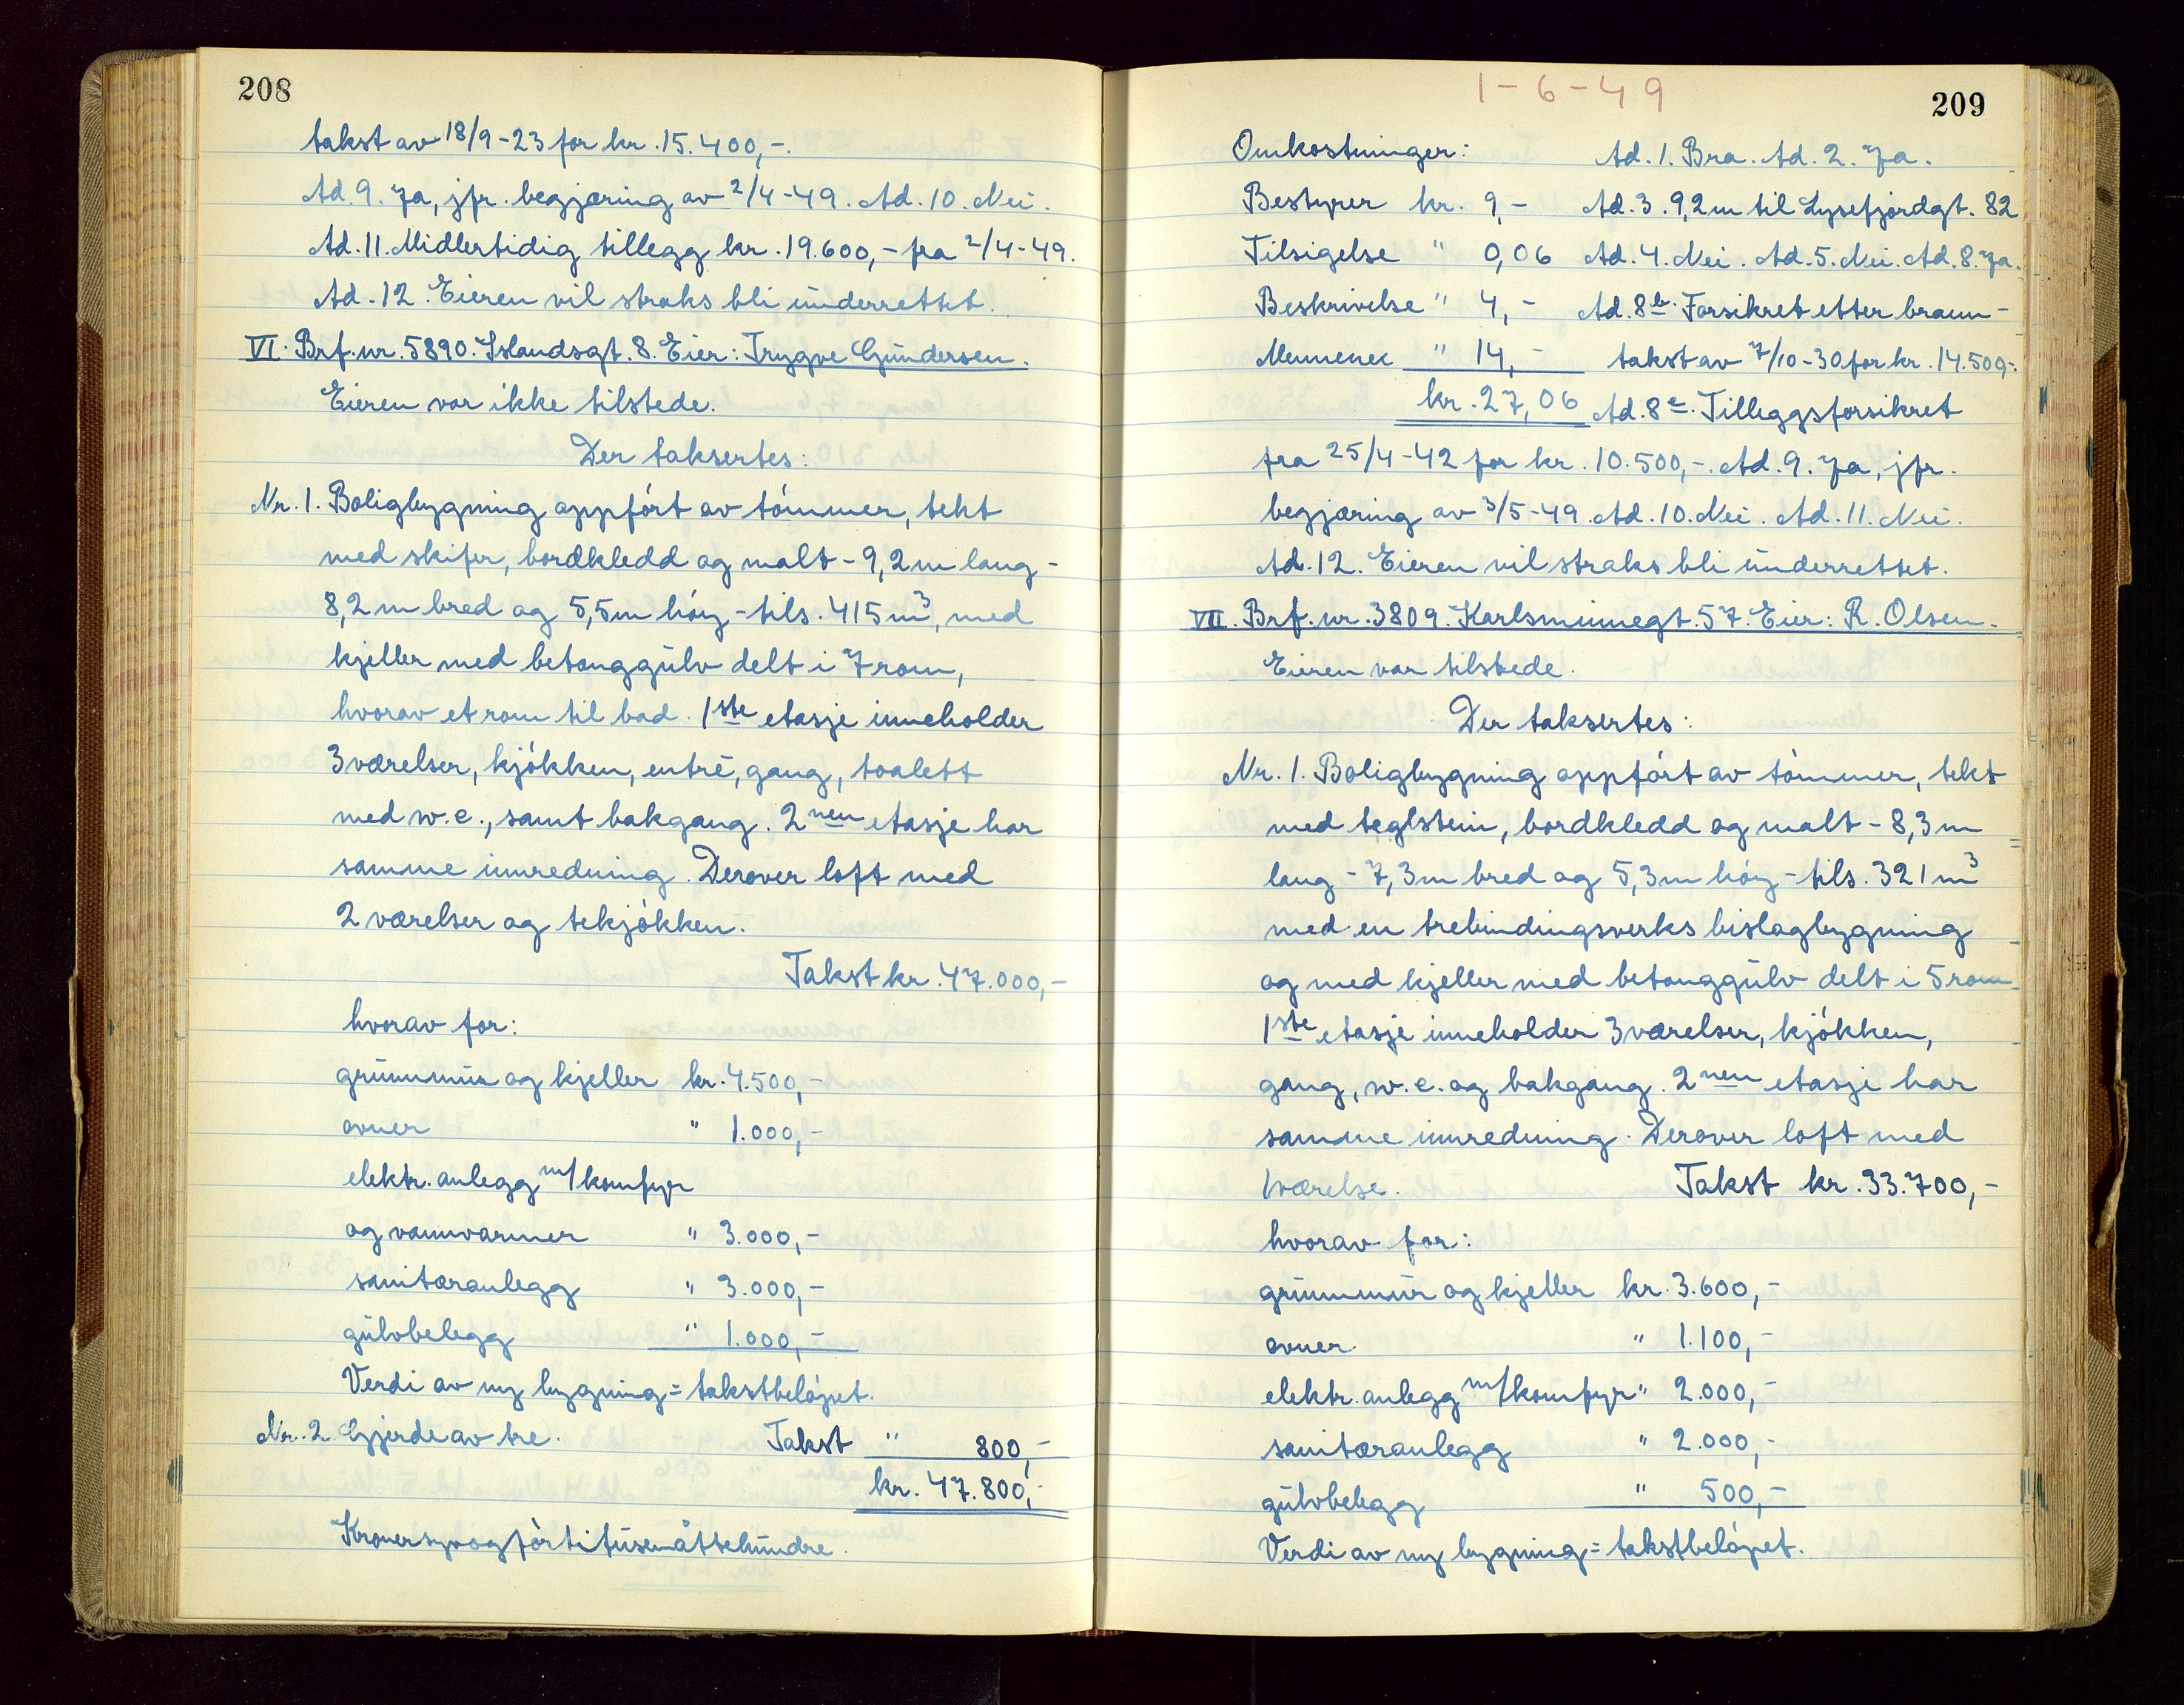 208
takst av 18/9-23 for kr. 15.400,-.
Ad. 9. Ja, jfr. begjæring av 2/4-49. Ad. 10. Nei.
Ad. 11. Midlertidig tillegg kr. 19.600,- fra 2/4-49.
Ad. 12. Eieren vil straks bli underrettet.
VI. Brf. nr. 5890. Islandsgt. 8. Eier: Trygve Gundersen.
Eieren var ikke tilstede.
Der taksertes:
Nr. 1. Boligbygning oppført av tømmer, tekt
med skifer, bordkledd og malt - 9,2 m lang -
8,2 m bred og 5,5 m høy - tils. 415 m³, med
kjeller med betonggulv delt i 7 rom,
hvorav et rom til bad. 1ste etasje inneholder
3 værelser, kjøkken, entré, gang, toalett
med w.c., samt bakgang. 2nen etasje har
samme innredning. Derover loft med
2 værelser og tekjøkken.
Takst kr. 47.000,-
hvorav for:
grunnmur og kjeller kr. 4.500,-
ovner " 1.000,-
elektr. anlegg m/komfyr
og vannvarmer " 3.000,-
sanitæranlegg " 3.000,-
gulvbelegg " 1.000,-
Verdi av ny bygning = takstbeløpet.
Nr. 2. Gjerde av tre. Takst " 800,-
kr. 47.800,-
Kronersyvogførtitusenåttehundre.
1-6-49
209
Omkostninger: Ad. 1. Bra. Ad. 2. Ja.
Bestyrer kr. 9,- Ad. 3. 9,2 m til Lysefjordgt. 82
Tilsigelse " 0,06 Ad. 4. Nei. Ad. 5. Nei. Ad. 8. Ja.
Beskrivelse " 4,- Ad. 8b. Forsikret etter brann-
Mennene " 14,- takst av 7/10-30 for kr. 14.500,-.
kr. 27,06 Ad. 8c. Tilleggsforsikret
fra 25/4-42 for kr. 10.500,-. Ad. 9. Ja, jfr.
begjæring av 3/5-49. Ad. 10. Nei. Ad. 11. Nei.
Ad. 12. Eieren vil straks bli underrettet.
VII. Brf. nr. 3809. Karlsminnegt. 57. Eier: R. Olsen.
Eieren var tilstede.
Der taksertes:
Nr. 1. Boligbygning oppført av tømmer, tekt
med teglstein, bordkledd og malt - 8,3 m
lang - 7,3 m bred og 5,3 m høy - tils. 321 m³
med en trebindingsverks bislagbygning
og med kjeller med betonggulv delt i 5 rom.
1ste etasje inneholder 3 værelser, kjøkken,
gang, w.c. og bakgang. 2nen etasje har
samme innredning. Derover loft med
1 værelse. Takst kr. 33.700,-
hvorav for:
grunnmur og kjeller kr. 3.600,-
ovner. " 1.100,-
elektr. anlegg m/komfyr " 2.000,-
sanitæranlegg " 2.000,-
gulvbelegg " 500,-
Verdi av ny bygning = takstbeløpet.